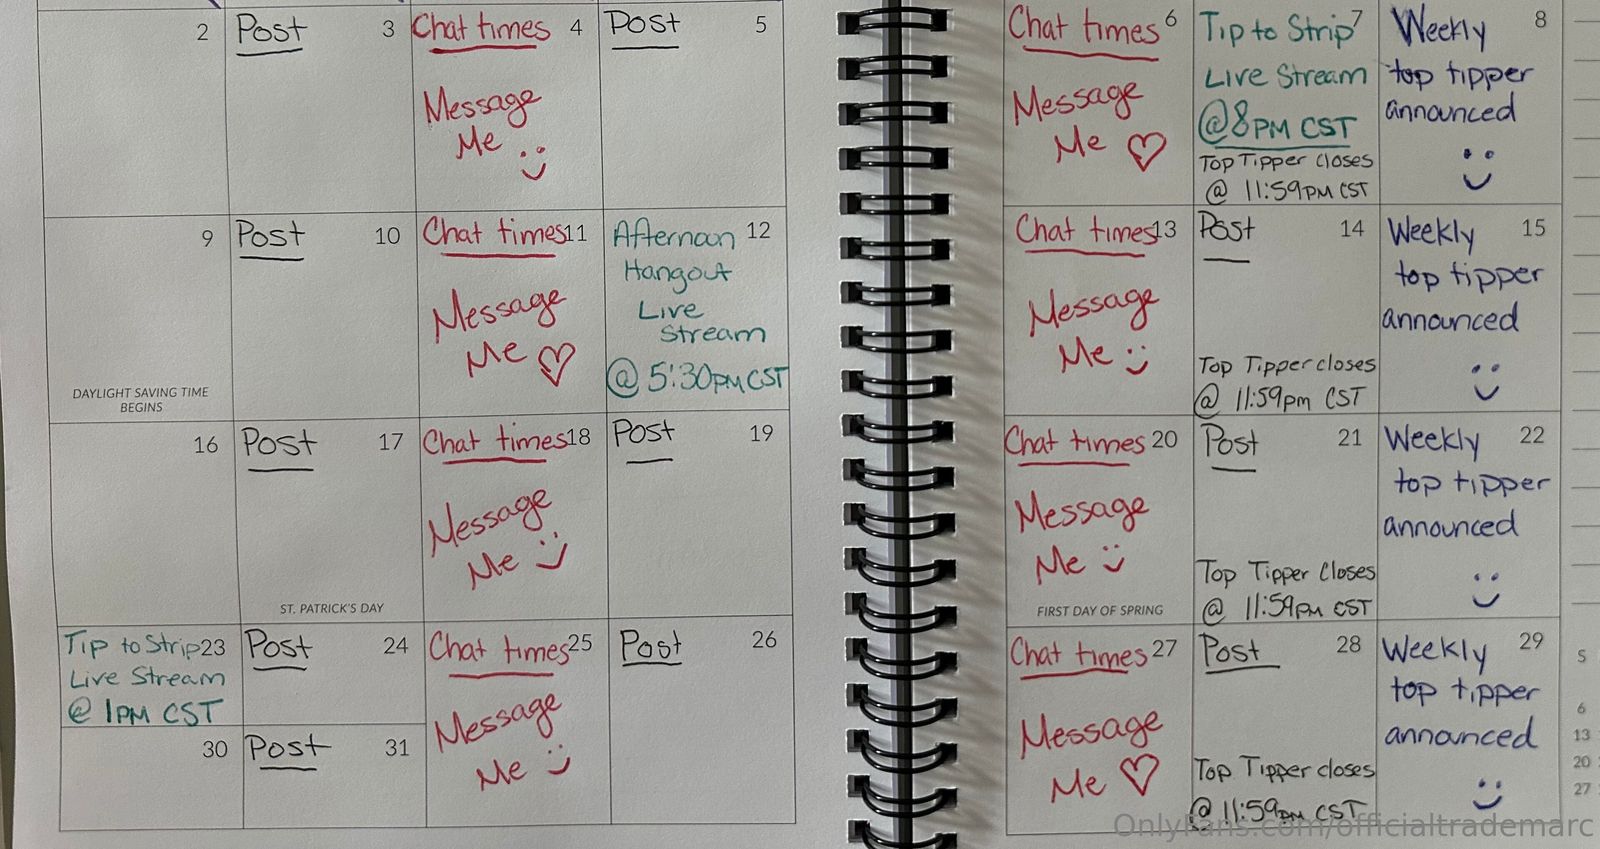 2
Post 3
Chat times 4
Message
Me
Post 5
Chat times 6
Message
Me
Tip to Strip 7
Live Stream
@ 8PM CST
Top Tipper closes
@ 11:59PM CST
Weekly 8
top tipper
announced
9
DAYLIGHT SAVING TIME
BEGINS
Post 10
Chat times 11
Message
Me
Afternoon 12
Hangout
Live
Stream
@ 5:30PM CST
Chat times 13
Message
Me
Post 14
Top Tipper closes
@ 11:59pm CST
Weekly 15
top tipper
announced
16
Post 17
ST. PATRICK'S DAY
Chat times 18
Message
Me
Post 19
Chat times 20
Message
Me
FIRST DAY OF SPRING
Post 21
Top Tipper Closes
@ 11:59PM CST
Weekly 22
top tipper
announced
Tip to Strip 23
Live Stream
@ 1PM CST
Post 24
Chat times 25
Message
Me
Post 26
Chat times 27
Message
Me
Post 28
Top Tipper closes
@ 11:59pm CST
Weekly 29
top tipper
announced
30
Post 31
S
6
13
20
27
OnlyFans.com/officialtrademarc